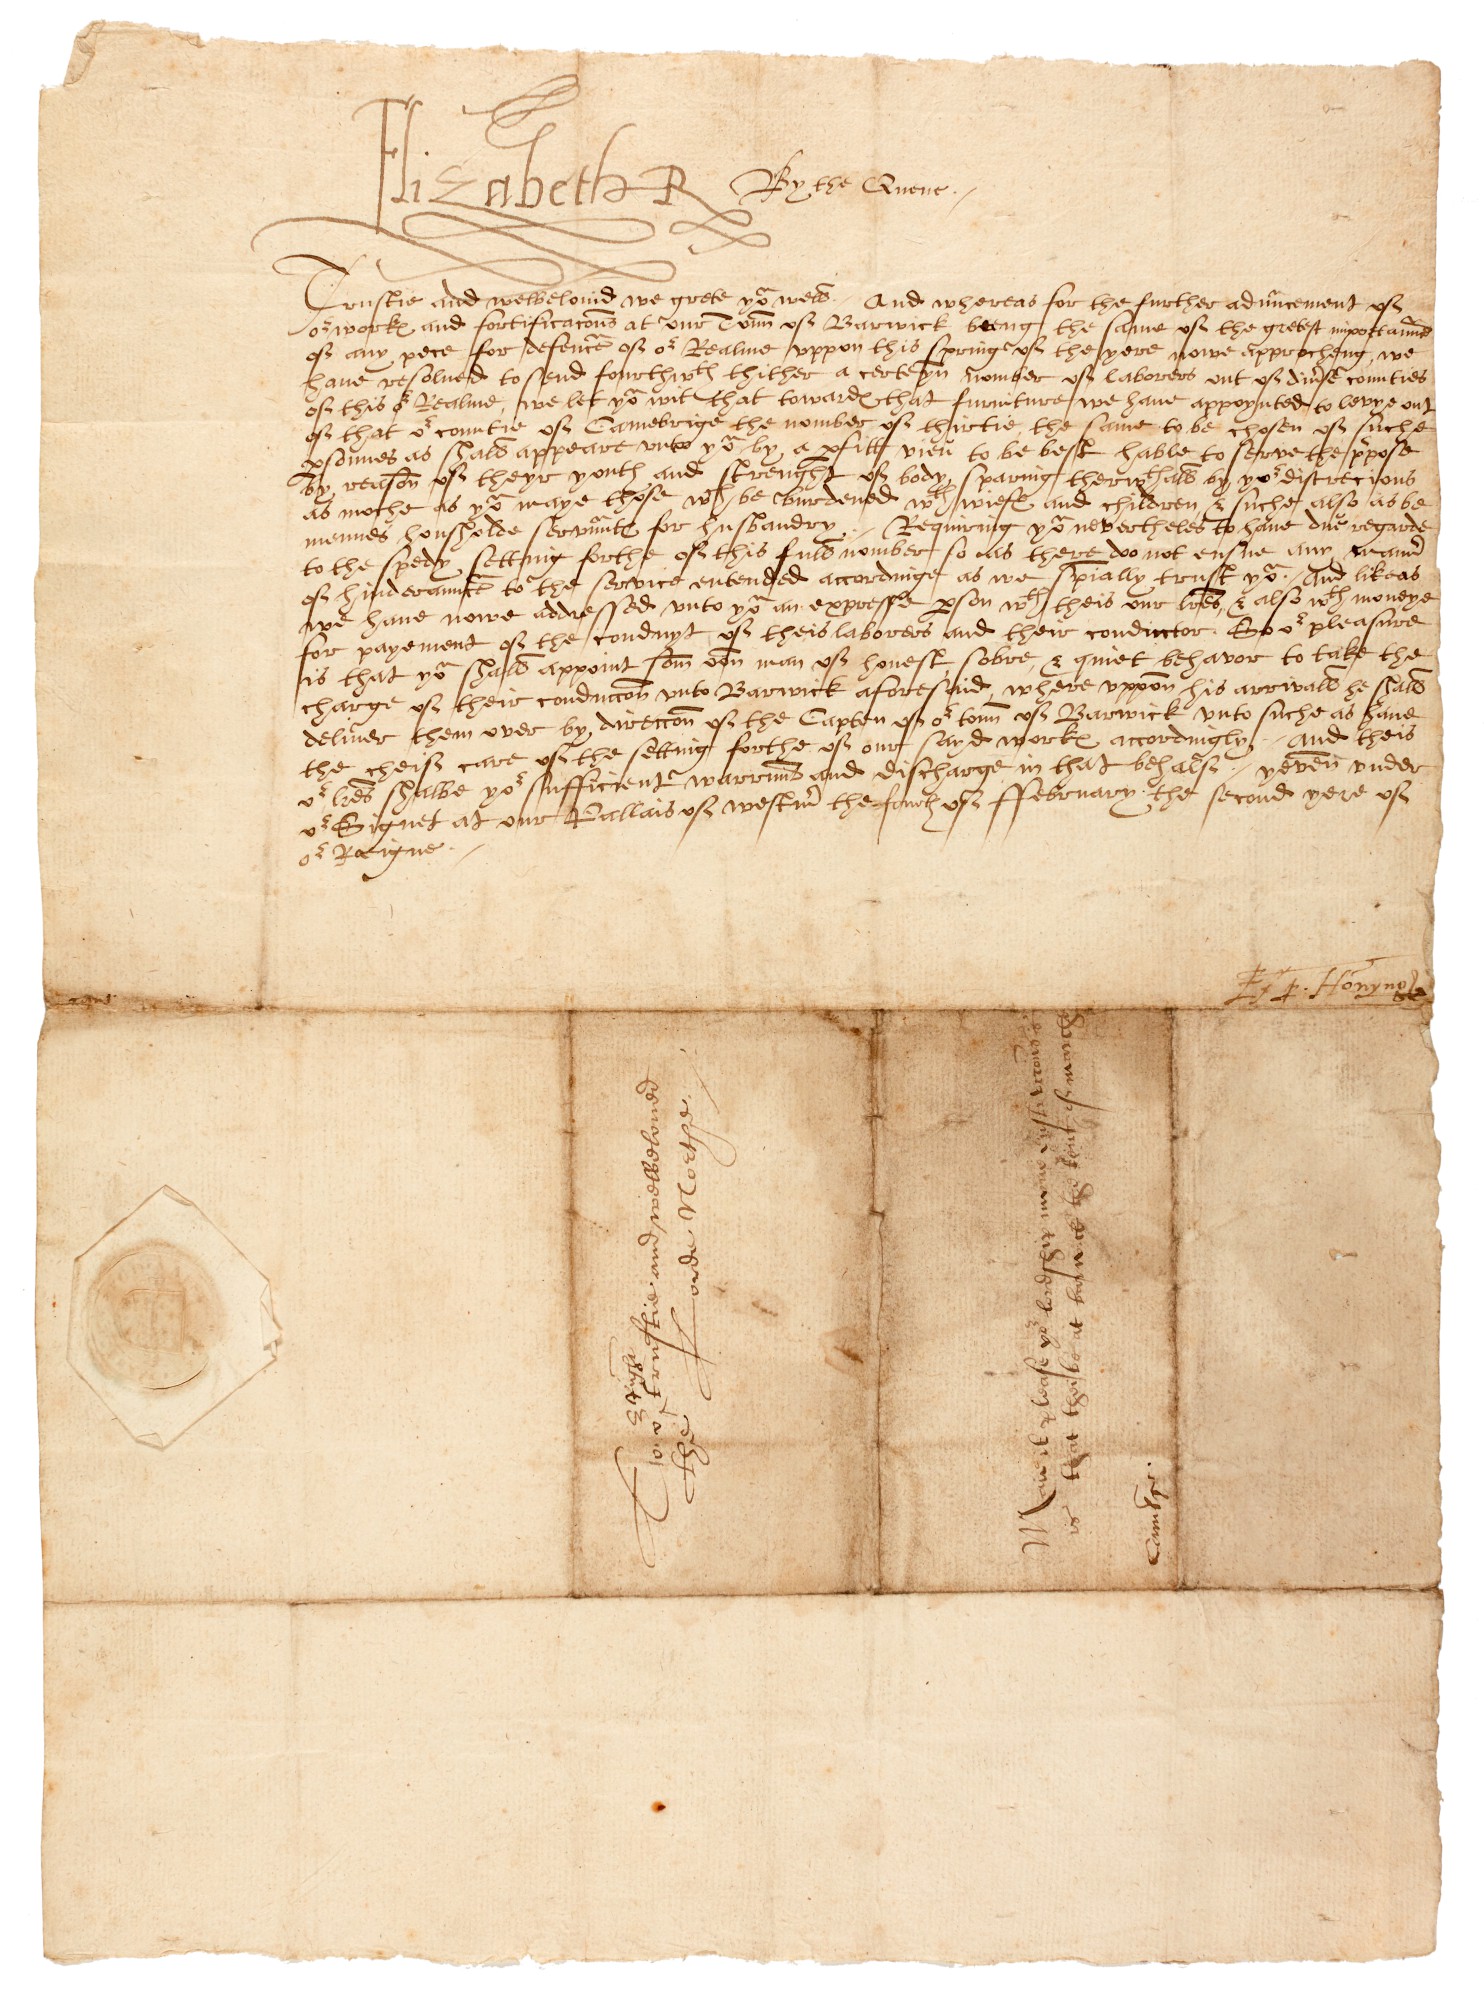 Elizabeth R By the Quene.
Trustie and welbelovid we grete yoᵘ well. And whereas for the further advͣncement of
oʳ workͤ and fortificacōns at our Toun of Barwick beeng the same of the gretest
of any pece for defence of oʳ Realme uppon this Springe of the yere nowe approcheng, we
have resolued to send fourthwᵗʰ thither a certeyn nomber of laborers out of div̄se counties
of this oʳ Realme, we let yoᵘ wit that towardͤ that furniture we have appoynted to levye out
of that oʳ countie of Camebrige the nomber of thirtie the same to be chosen of suche
ꝑsonnes as shall appeare unto yoᵘ by a ꝑfitt vieu to be best hable to serve the p̱pose
by reason of theyr youth and strenght of body, sparing therwᵗʰall by yoʳ discrecions
as moche as yoᵘ maye those wᶜʰ be burdened wᵗʰ wiefͤ and children, & suche also as be
mennes housholde servͣntͤ for husbandry. Requiring yoᵘ nevertheles to have due regarde
to the spedy setting forthe of this full nomber so as there do not ensue any man̄
of hinderaunce to the service entended accordinge as we sp̄ially trust yoᵘ. And likeas
we have nowe addressed unto yoᵘ an expresse ꝑson wᵗʰ theis our l̄res, & also wᵗʰ moneye
for payement of the conduyt of theis laborers and their conductor. So oʳ pleasure
is that yoᵘ shall appoint som oon man of honest, sobre, & quiet behavor to take the
charge of their conduccōn unto Barwick aforesaid, where uppon his arrivall he shall
deliver them over by direccōn of the Capten of oʳ toun of Barwick unto suche as have
the cheif care of the setting forthe of our sayd workͤ accordingly. And theis
oʳ l̄res shalbe yoʳ sufficient warrͣnt and discharge in that behalf. yeven under
oʳ Signet at our Pallais of westm̄ the fourth of ffebruary the second yere of
oʳ Reigne.
Honyng
To oʳ trustie and welbeloued
the Lorde Northe.
Maie it please yoʳ Lordship
is that
Cambr.